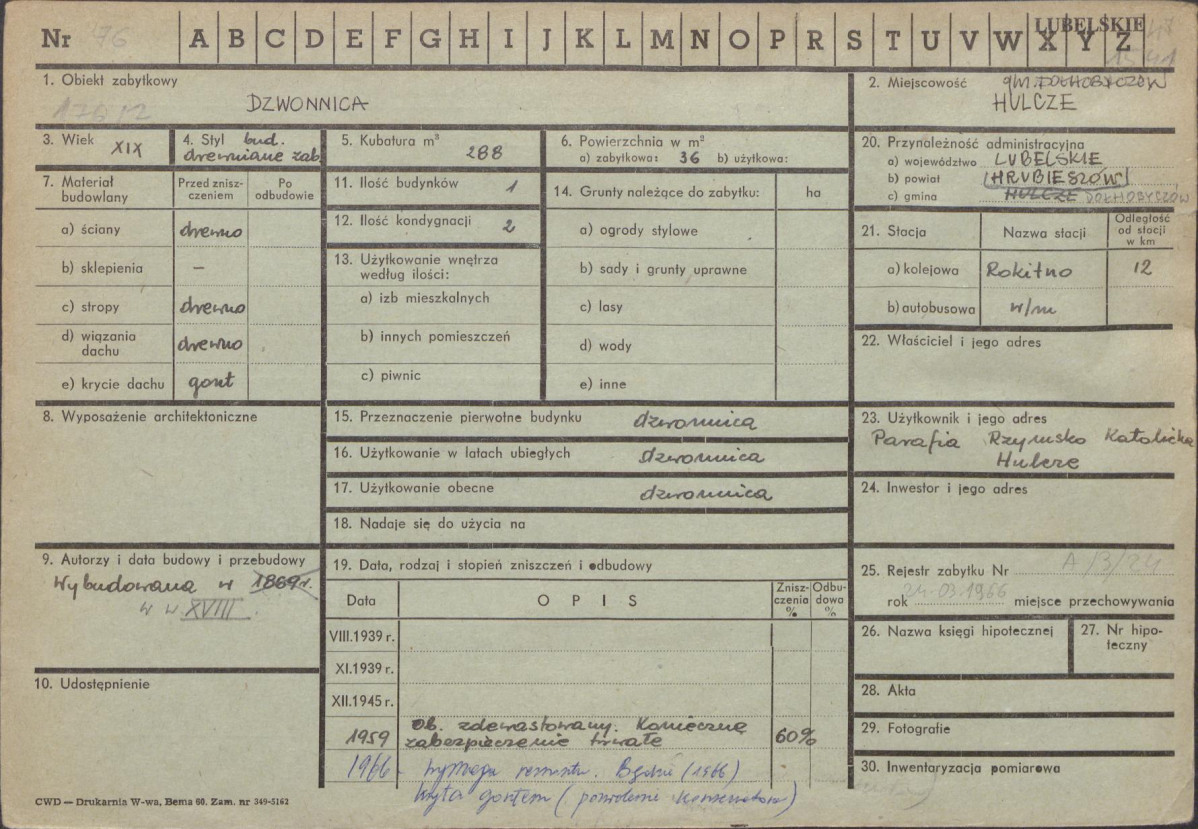 LUBELSKIE
Nr 76 A B C D E F G H I J K L M N O P R S T U V W X Y Z
1. Obiekt zabytkowy
DZWONNICA
2. Miejscowość gm. DOŁHOBYCZÓW
HULCZE
3. Wiek XIX
4. Styl bud.
drewniane zab.
5. Kubatura m³ 288
6. Powierzchnia w m²
a) zabytkowa: 36 b) użytkowa:
20. Przynależność administracyjna
a) województwo LUBELSKIE
b) powiat HRUBIESZÓW
c) gmina HULCZE DOŁHOBYCZÓW
7. Materiał budowlany
Przed zniszczeniem
Po odbudowie
a) ściany drewno
b) sklepienia –
c) stropy drewno
d) wiązania dachu drewno
e) krycie dachu gont
11. Ilość budynków 1
12. Ilość kondygnacji 2
13. Użytkowanie wnętrza
według ilości:
a) izb mieszkalnych
b) innych pomieszczeń
c) piwnic
14. Grunty należące do zabytku: ha
a) ogrody stylowe
b) sady i grunty uprawne
c) lasy
d) wody
e) inne
21. Stacja
Nazwa stacji
Odległość
od stacji
w km
a) kolejowa Rokitno 12
b) autobusowa w/m
22. Właściciel i jego adres
8. Wyposażenie architektoniczne
15. Przeznaczenie pierwotne budynku dzwonnica
16. Użytkowanie w latach ubiegłych dzwonnica
17. Użytkowanie obecne dzwonnica
18. Nadaje się do użycia na
23. Użytkownik i jego adres
Parafia Rzymsko Katolicka
Hulcze
24. Inwestor i jego adres
9. Autorzy i data budowy i przebudowy
Wybudowana w 1869r.
w w XVIII.
10. Udostępnienie
19. Data, rodzaj i stopień zniszczeń i odbudowy
Data
OPIS
Zniszczenia %
Odbudowa %
VIII.1939 r.
XI.1939 r.
XII.1945 r.
1959 Ob. zdewastowany. Konieczne
zabezpieczenie trwałe 60%
1966 wymaga remontu. Będzie (1966)
kryta gontem (pozwolenie Konserwatora)
25. Rejestr zabytku Nr A/3/24
rok 24-03-1966 miejsce przechowywania
26. Nazwa księgi hipotecznej
27. Nr hipoteczny
28. Akta
29. Fotografie
30. Inwentaryzacja pomiarowa
CWD — Drukarnia W-wa, Bema 60. Zam. nr 349-5162